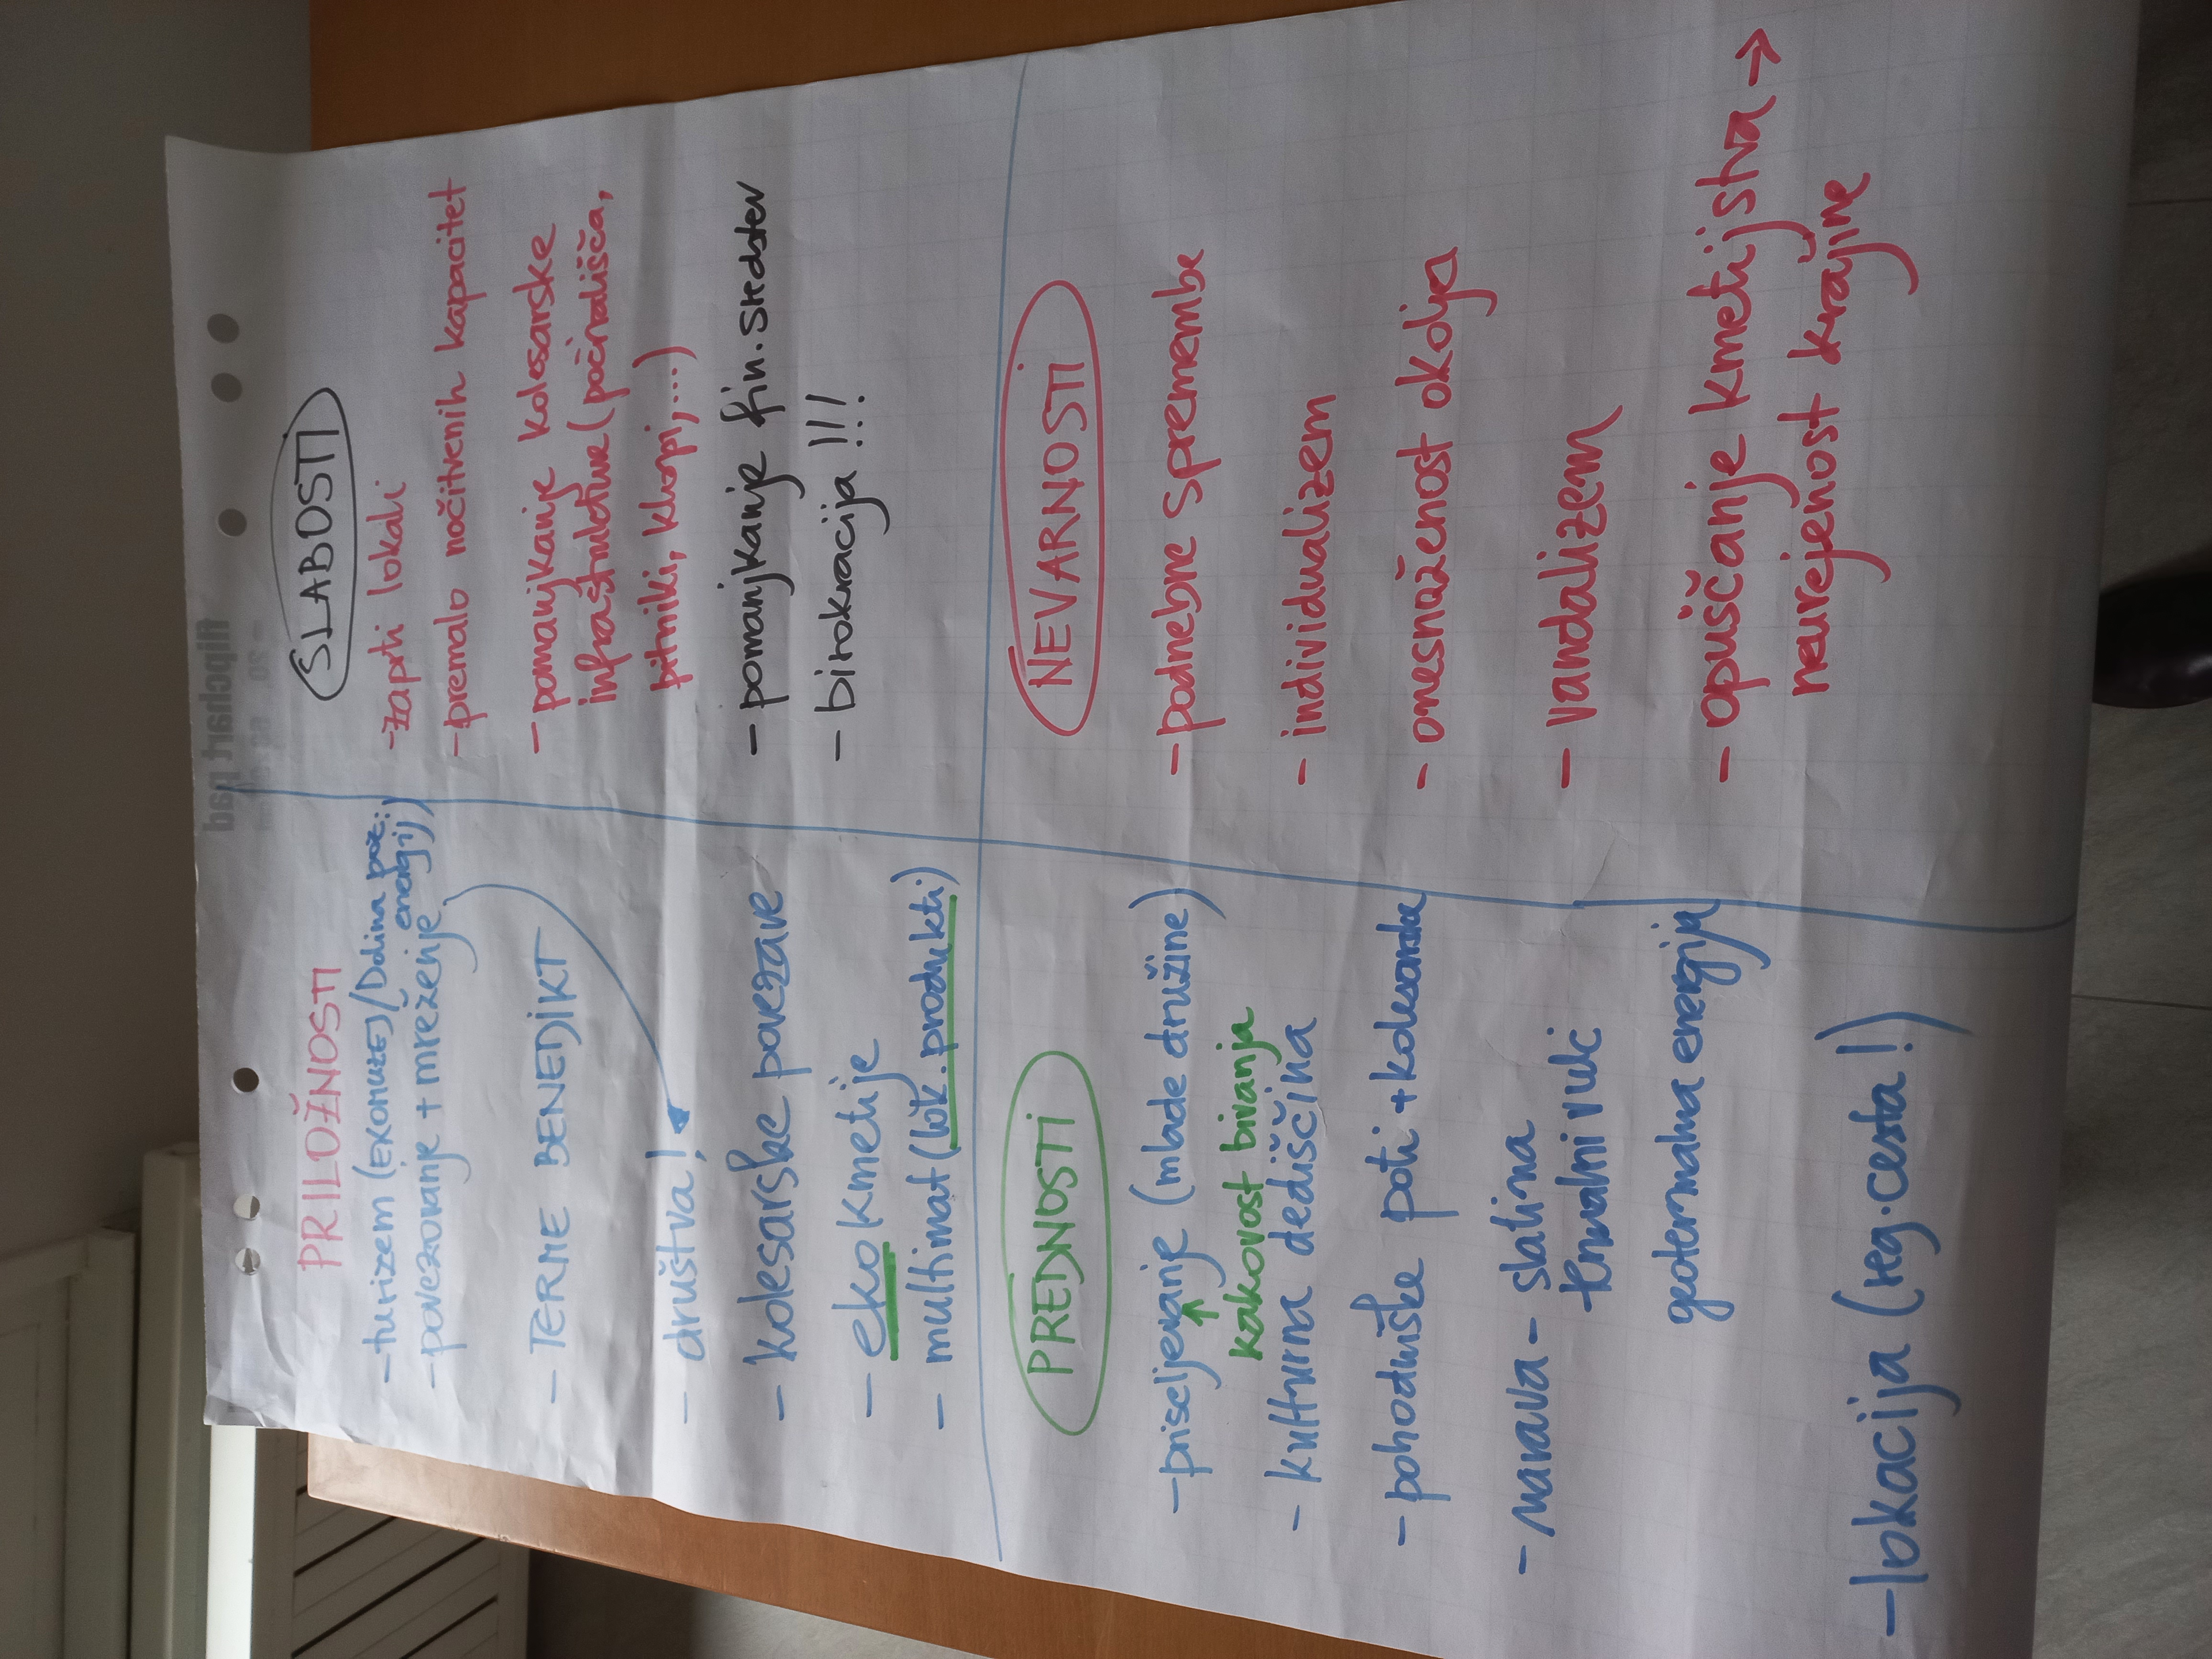 PRILOŽNOSTI
- turizem (EKOMUZEJ / Dolina poz.
energij)
- povezovanje + mreženje
- TERME BENEDIKT
- društva!
- kolesarske povezave
- eko kmetije
- multimat (lok. produkti)
SLABOSTI
- zaprti lokali
- premalo nočitvenih kapacitet
- pomanjkanje kolesarske
infrastrukture (počivališča,
pitniki, klopi, ...)
- pomanjkanje fin. sredstev
- birokracija !!!
PREDNOSTI
- priseljevanje (mlade družine)
kakovost bivanja
- kulturna dediščina
- pohodniške poti + kolesarska
- narava - slatina
termalni vulc
geotermalna energija
- lokacija (reg. cesta!)
NEVARNOSTI
- podnebne spremembe
- individualizem
- onesnaženost okolja
- vandalizem
- opuščanje kmetijstva →
neurejenost krajine
flipchart pad